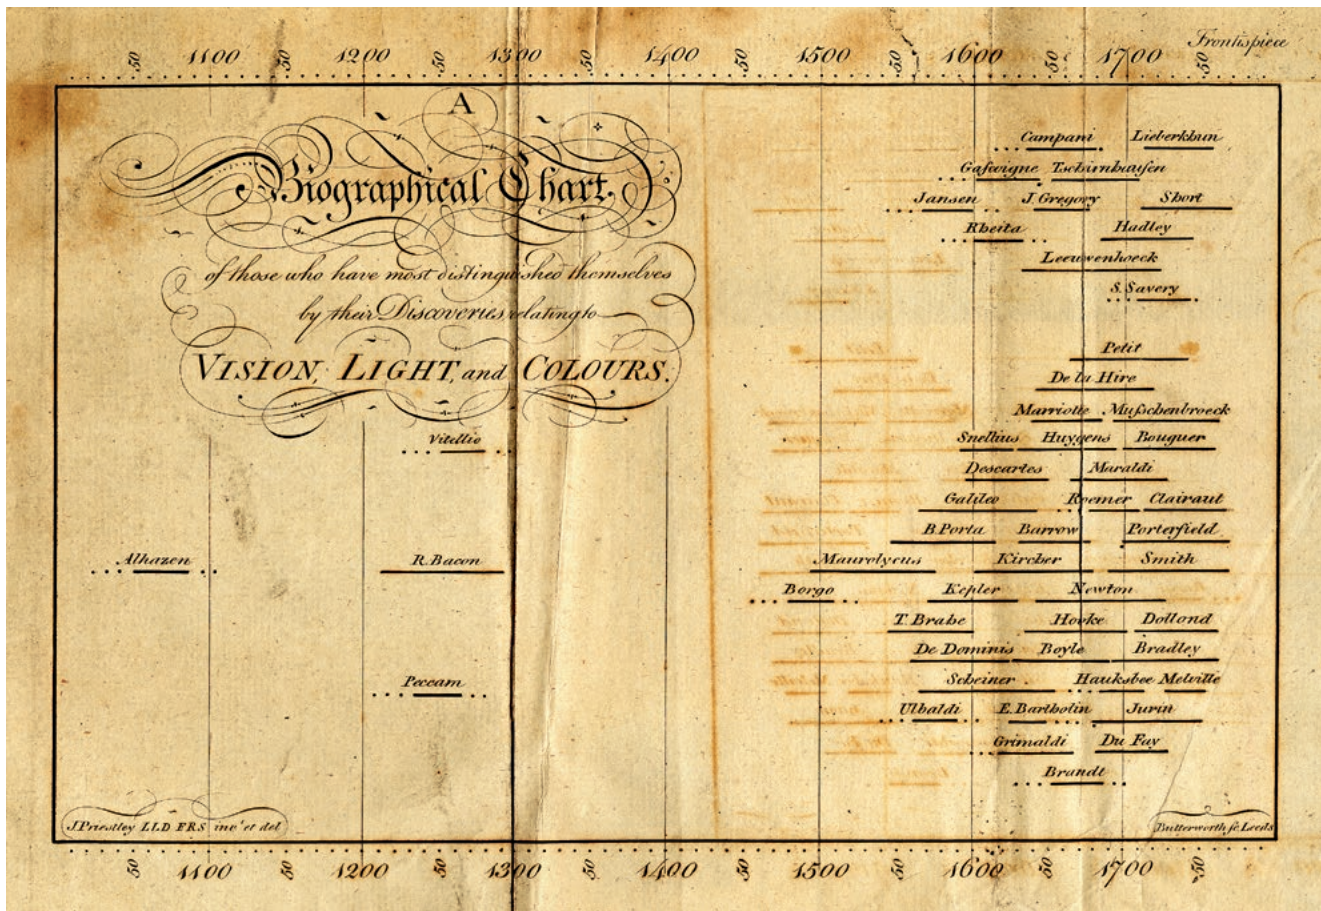 Frontispiece
50 1100 50 1200 50 1300 50 1400 50 1500 50 1600 50 1700 50
A
Biographical Chart,
of those who have most distinguished themselves
by their Discoveries relating to
VISION, LIGHT, and COLOURS.
Campani Lieberkhun
Gascoigne Tschirnhausen
Jansen J. Gregory Short
Rheita Hadley
Leeuwenhoeck
S. Savery
Petit
De la Hire
Marriotte Muſschenbroeck
Vitellio Snellius Huygens Bouguer
Descartes Maraldi
Galileo Roemer Clairaut
B. Porta Barrow Porterfield
Alhazen R. Bacon Maurolycus Kircher Smith
Borgo Kepler Newton
T. Brahe Hooke Dollond
De Dominis Boyle Bradley
Peccam Scheiner Hauksbee Melville
Ulbaldi E. Bartholin Jurin
Grimaldi Du Fay
Brandt
J. Priestley LLD FRS inv.t et del
Butterworth sc. Leeds
50 1100 50 1200 50 1300 50 1400 50 1500 50 1600 50 1700 50